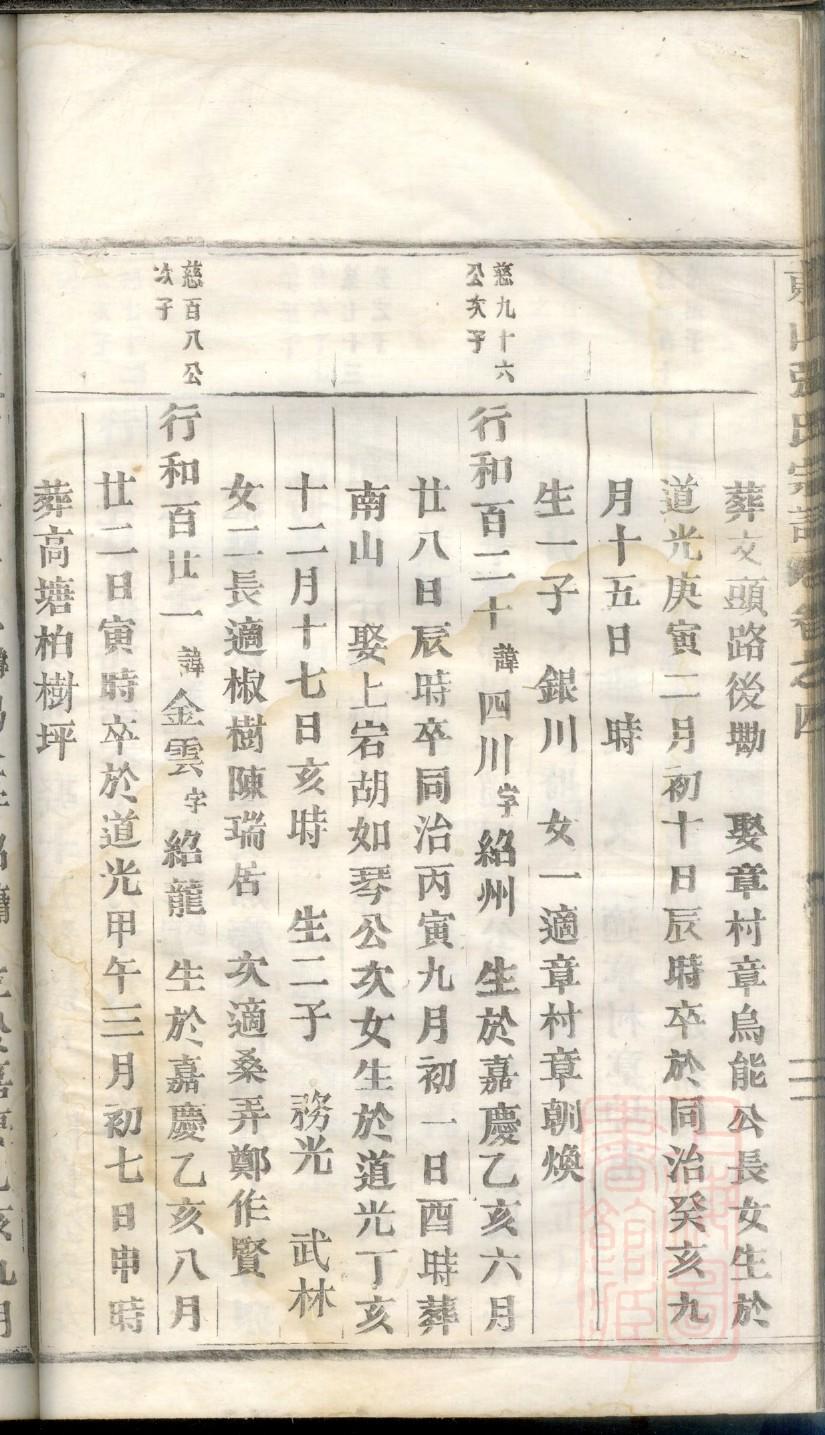 葬交頭路後勘 娶章村章烏能公長女生於
道光庚寅二月初十日辰時卒於同治癸亥九
月十五日 時
生一子 銀川 女一適章村章朝煥
慈九十六
公次子
行和百二十 諱四川 字紹州 生於嘉慶乙亥六月
廿八日辰時卒同治丙寅九月初一日酉時葬
南山 娶上宕胡如琴公次女生於道光丁亥
十二月十七日亥時 生二子 務光 武林
女二長適椒樹陳瑞居 次適桑弄鄭作賢
慈百八公
次子
行和百廿一 諱金雲 字紹龍 生於嘉慶乙亥八月
廿二日寅時卒於道光甲午三月初七日申時
葬高塘柏樹坪